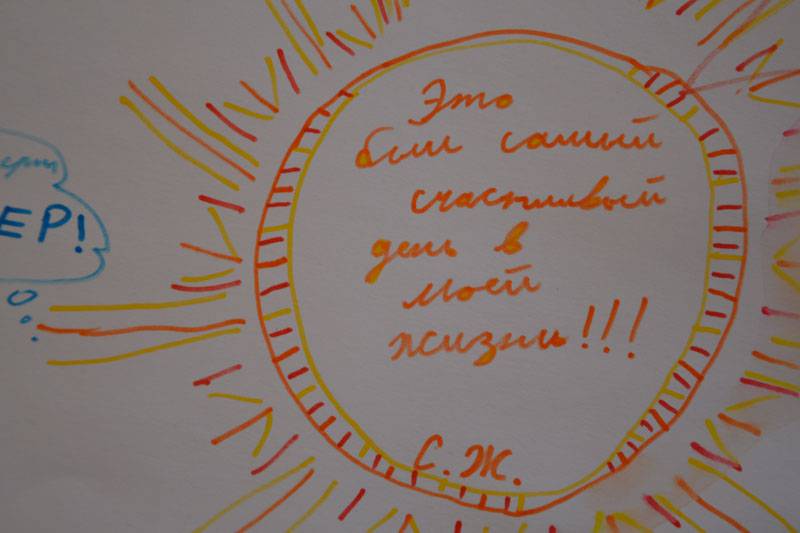 ЕР!
Это
был самый
счастливый
день в
моей
жизни!!!
С.Ж.